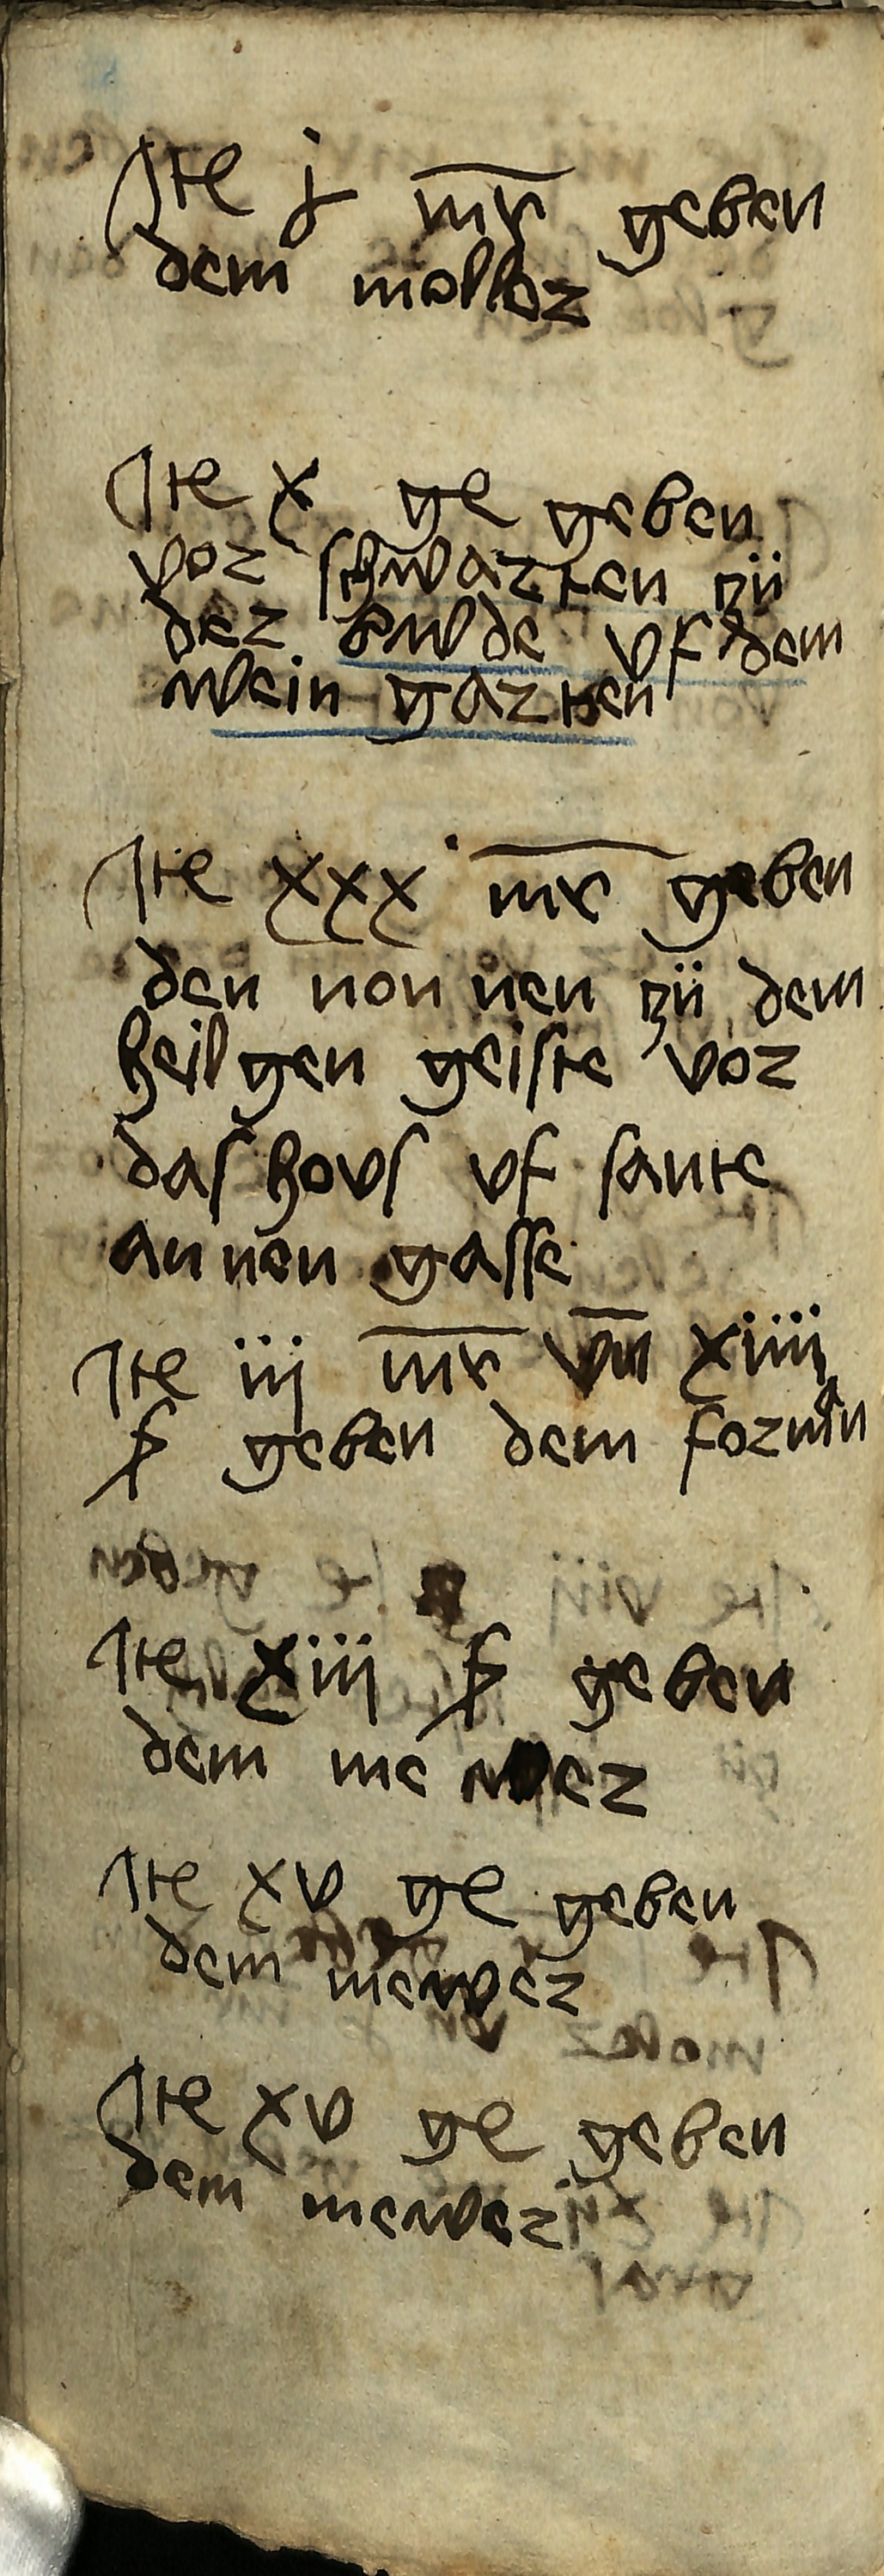 Ite j mr geben
dem moller
Ite x ge geben
vor schwarten zü
der bwde vf dem
wein garten
Ite xxx mr geben
den non nen zü dem
heilgen geiste vor
das hovs vf sante
annen gasse
Ite iij mr vn xiiii
ꝭ geben dem formān
Ite xiij ꝭ geben
dem me wer
Ite xv ge geben
dem mewer
Ite xv ge geben
dem mewer